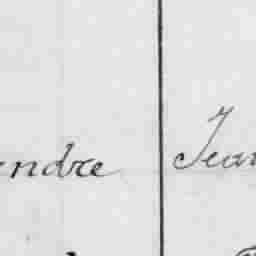 endre Jean